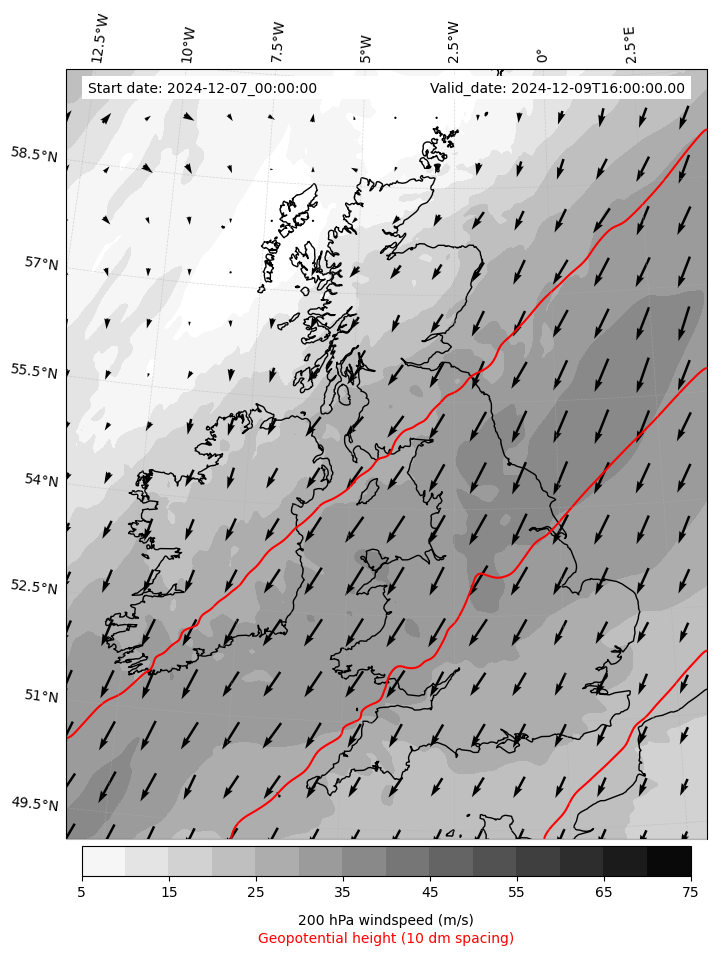 12.5°W 10°W 7.5°W 5°W 2.5°W 0° 2.5°E
Start date: 2024-12-07_00:00:00 Valid_date: 2024-12-09T16:00:00.00
58.5°N
57°N
55.5°N
54°N
52.5°N
51°N
49.5°N
5 15 25 35 45 55 65 75
200 hPa windspeed (m/s)
Geopotential height (10 dm spacing)